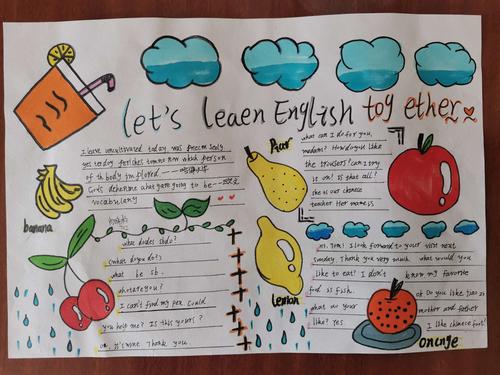 let's leaen English tog ether
I leave uncultivated today, was precisely
yesterday perishes tomorrow which person
of th body implored
Gods determine what gare going to be
vocabulary
banana
what dudes shdo?
(what do you do?)
what be sb.
what are you?
I can't find my pen. Could
you help me? Is this yours?
oh, it's mine. Thank you.
Pear
what can I do for you,
madam? How do you like
the trousers? Can I try
is on? Is that all?
she is our chinese
teacher. Her name is
Lemon
Hi, Tom! I look forward to your visit next
sunday. Thank you very much. what would you
like to eat? I don't know my favorite
food is fish. oh Do you like
what do your mother and father
like? Yes I like chinese food!
orange